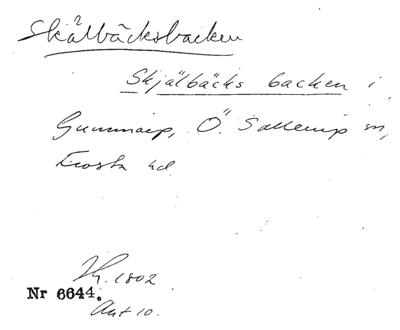 Skälbäcksbacken
Skjälbäcks backen i
Gunnarp, Ö. Sallerup sn,
Frosta hd.
1802
Nr 6644.
Akt 10.